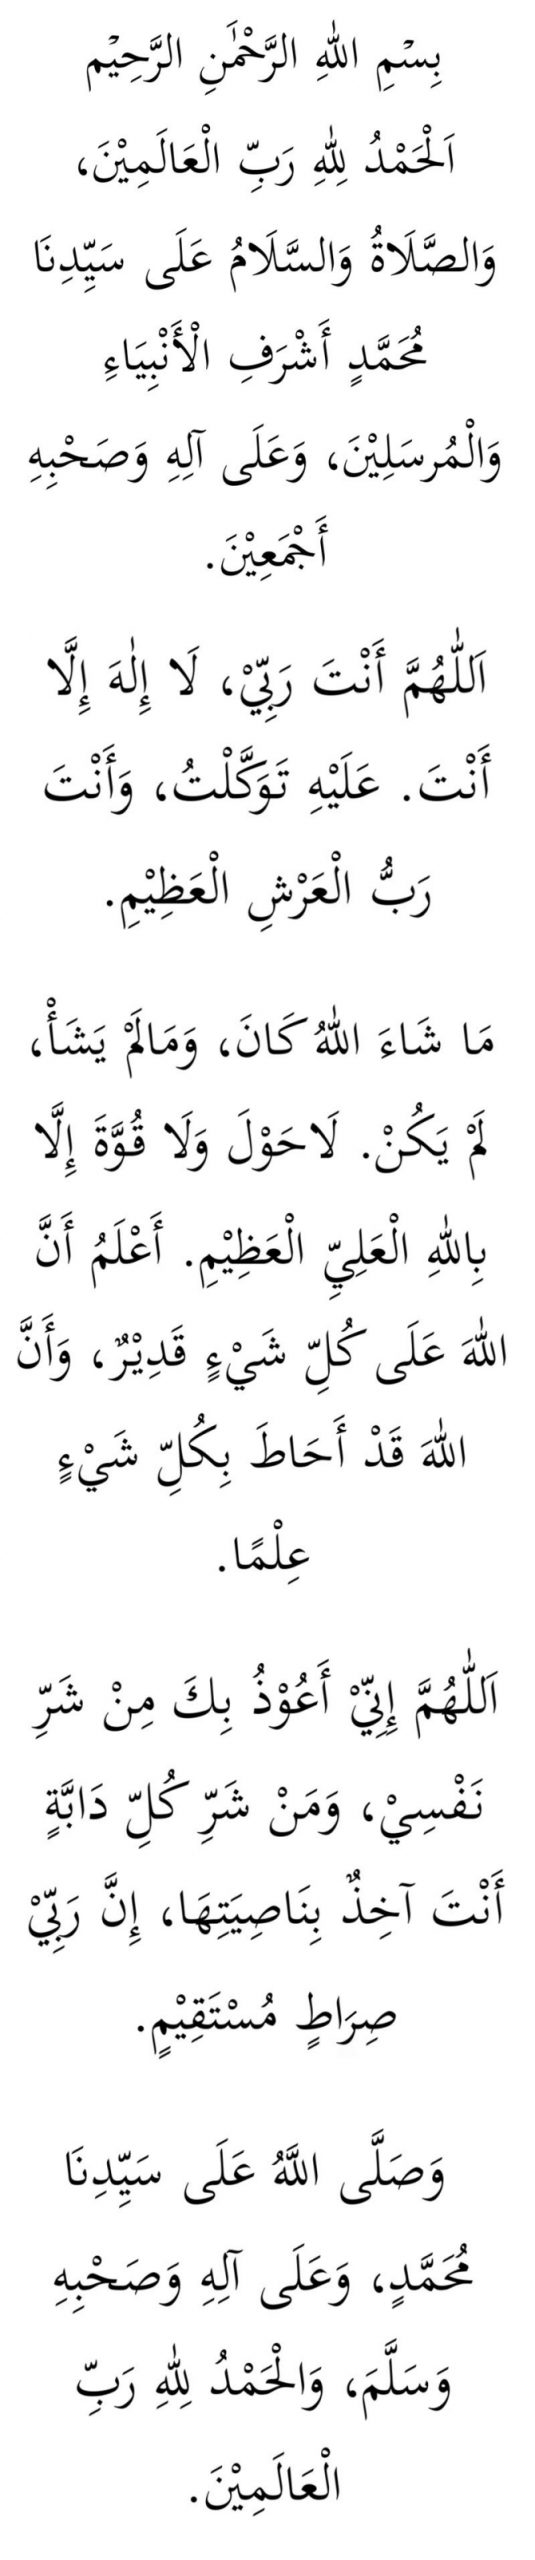 بِسْمِ اللهِ الرَّحْمٰنِ الرَّحِيْم
اَلْحَمْدُ لِلهِ رَبِّ الْعَالَمِيْنَ،
وَالصَّلَاةُ وَالسَّلَامُ عَلَى سَيِّدِنَا
مُحَمَّدٍ أَشْرَفِ الْأَنْبِيَاءِ
وَالْمُرسَلِيْنَ، وَعَلَى آلِهِ وَصَحْبِهِ
أَجْمَعِيْنَ.
اَللّٰهُمَّ أَنْتَ رَبِّيْ، لَا إِلٰهَ إِلَّا
أَنْتَ. عَلَيْهِ تَوَكَّلْتُ، وَأَنْتَ
رَبُّ الْعَرْشِ الْعَظِيْمِ.
مَا شَاءَ اللهُ كَانَ، وَمَالَمْ يَشَأْ،
لَمْ يَكُنْ. لَاحَوْلَ وَلَا قُوَّةَ إِلَّا
بِاللهِ الْعَلِيِّ الْعَظِيْمِ. أَعْلَمُ أَنَّ
اللهَ عَلَى كُلِّ شَيْءٍ قَدِيْرٌ، وَأَنَّ
اللهَ قَدْ أَحَاطَ بِكُلِّ شَيْءٍ
عِلْمًا.
اَللّٰهُمَّ إِنِّيْ أَعُوْذُ بِكَ مِنْ شَرِّ
نَفْسِيْ، وَمَنْ شَرِّ كُلِّ دَابَّةٍ
أَنْتَ آخِذٌ بِنَاصِيَتِهَا، إِنَّ رَبِّيْ
صِرَاطٍ مُسْتَقِيْمٍ.
وَصَلَّى اللَّهُ عَلَى سَيِّدِنَا
مُحَمَّدٍ، وَعَلَى آلِهِ وَصَحْبِهِ
وَسَلَّمَ، وَالْحَمْدُ لِلهِ رَبِّ
الْعَالَمِيْنَ.